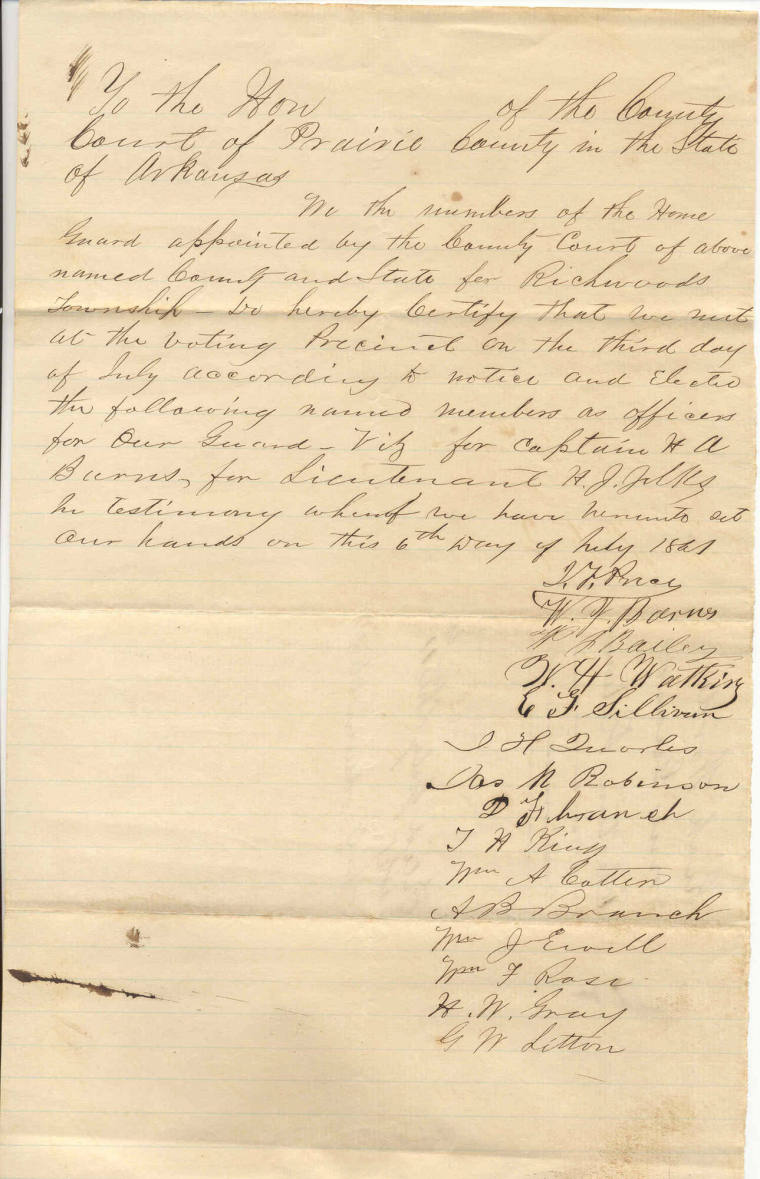 To the Hon of the County
Court of Prairie County in the State
of Arkansas
We the members of the Home
Guard appointed by the County Court of above
named County and State for Richwoods
Township – Do hereby Certify that we met
at the voting Precinct on the third day
of July according to notice and Elected
the following named members as officers
for Our Guard – Viz for Captain H A
Burns, for Lieutenant H. J.
In testimony whereof we have hereunto set
Our hands on this 6th Day of July 1861
Price
W. J. Barns
Bailey
W. H Watkins
E G Sillivan
J H Quarles
Jas N Robinson
D F branch
T H King
Wm A Cotten
A B Branch
Wm J Ewell
Wm F Rose
H. W. Gray
G W Litton